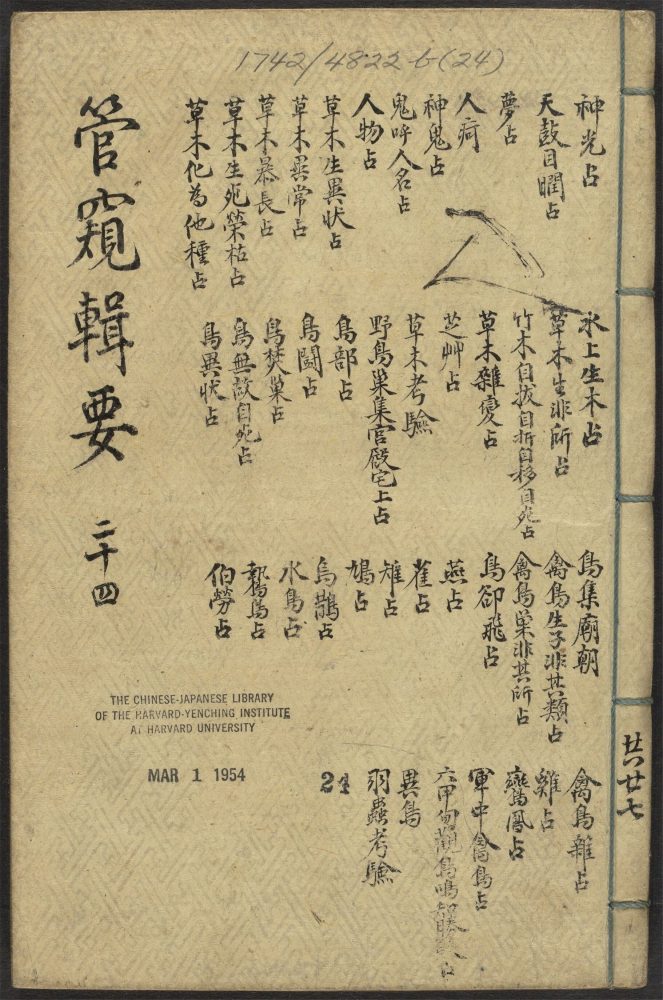 1742/4822 b(24)
管窺輯要
二十四
神光占
天鼓目瞤占
夢占
人痾
神鬼占
鬼呼人名占
人物占
草木生異狀占
草木異常占
草木暴長占
草木生死榮枯占
草木化為他種占
水上生木占
草木生非所占
竹木自拔自折自移自死占
草木雜變占
芝艸占
草木考驗
野鳥巢集官殿宅上占
鳥部占
鳥鬪占
鳥焚巢占
鳥無故自死占
鳥異狀占
鳥集廟朝
禽鳥生子非其類占
禽鳥巢非其所占
鳥卻飛占
燕占
雀占
雉占
鳩占
烏鵲占
水鳥占
鷙鳥占
伯勞占
禽鳥雜占
雞占
鸞鳳占
軍中禽鳥占
六甲旬觀鳥鳴占
異鳥
羽蟲考驗
24
廿六廿七
THE CHINESE-JAPANESE LIBRARY
OF THE HARVARD-YENCHING INSTITUTE
AT HARVARD UNIVERSITY
MAR 1 1954